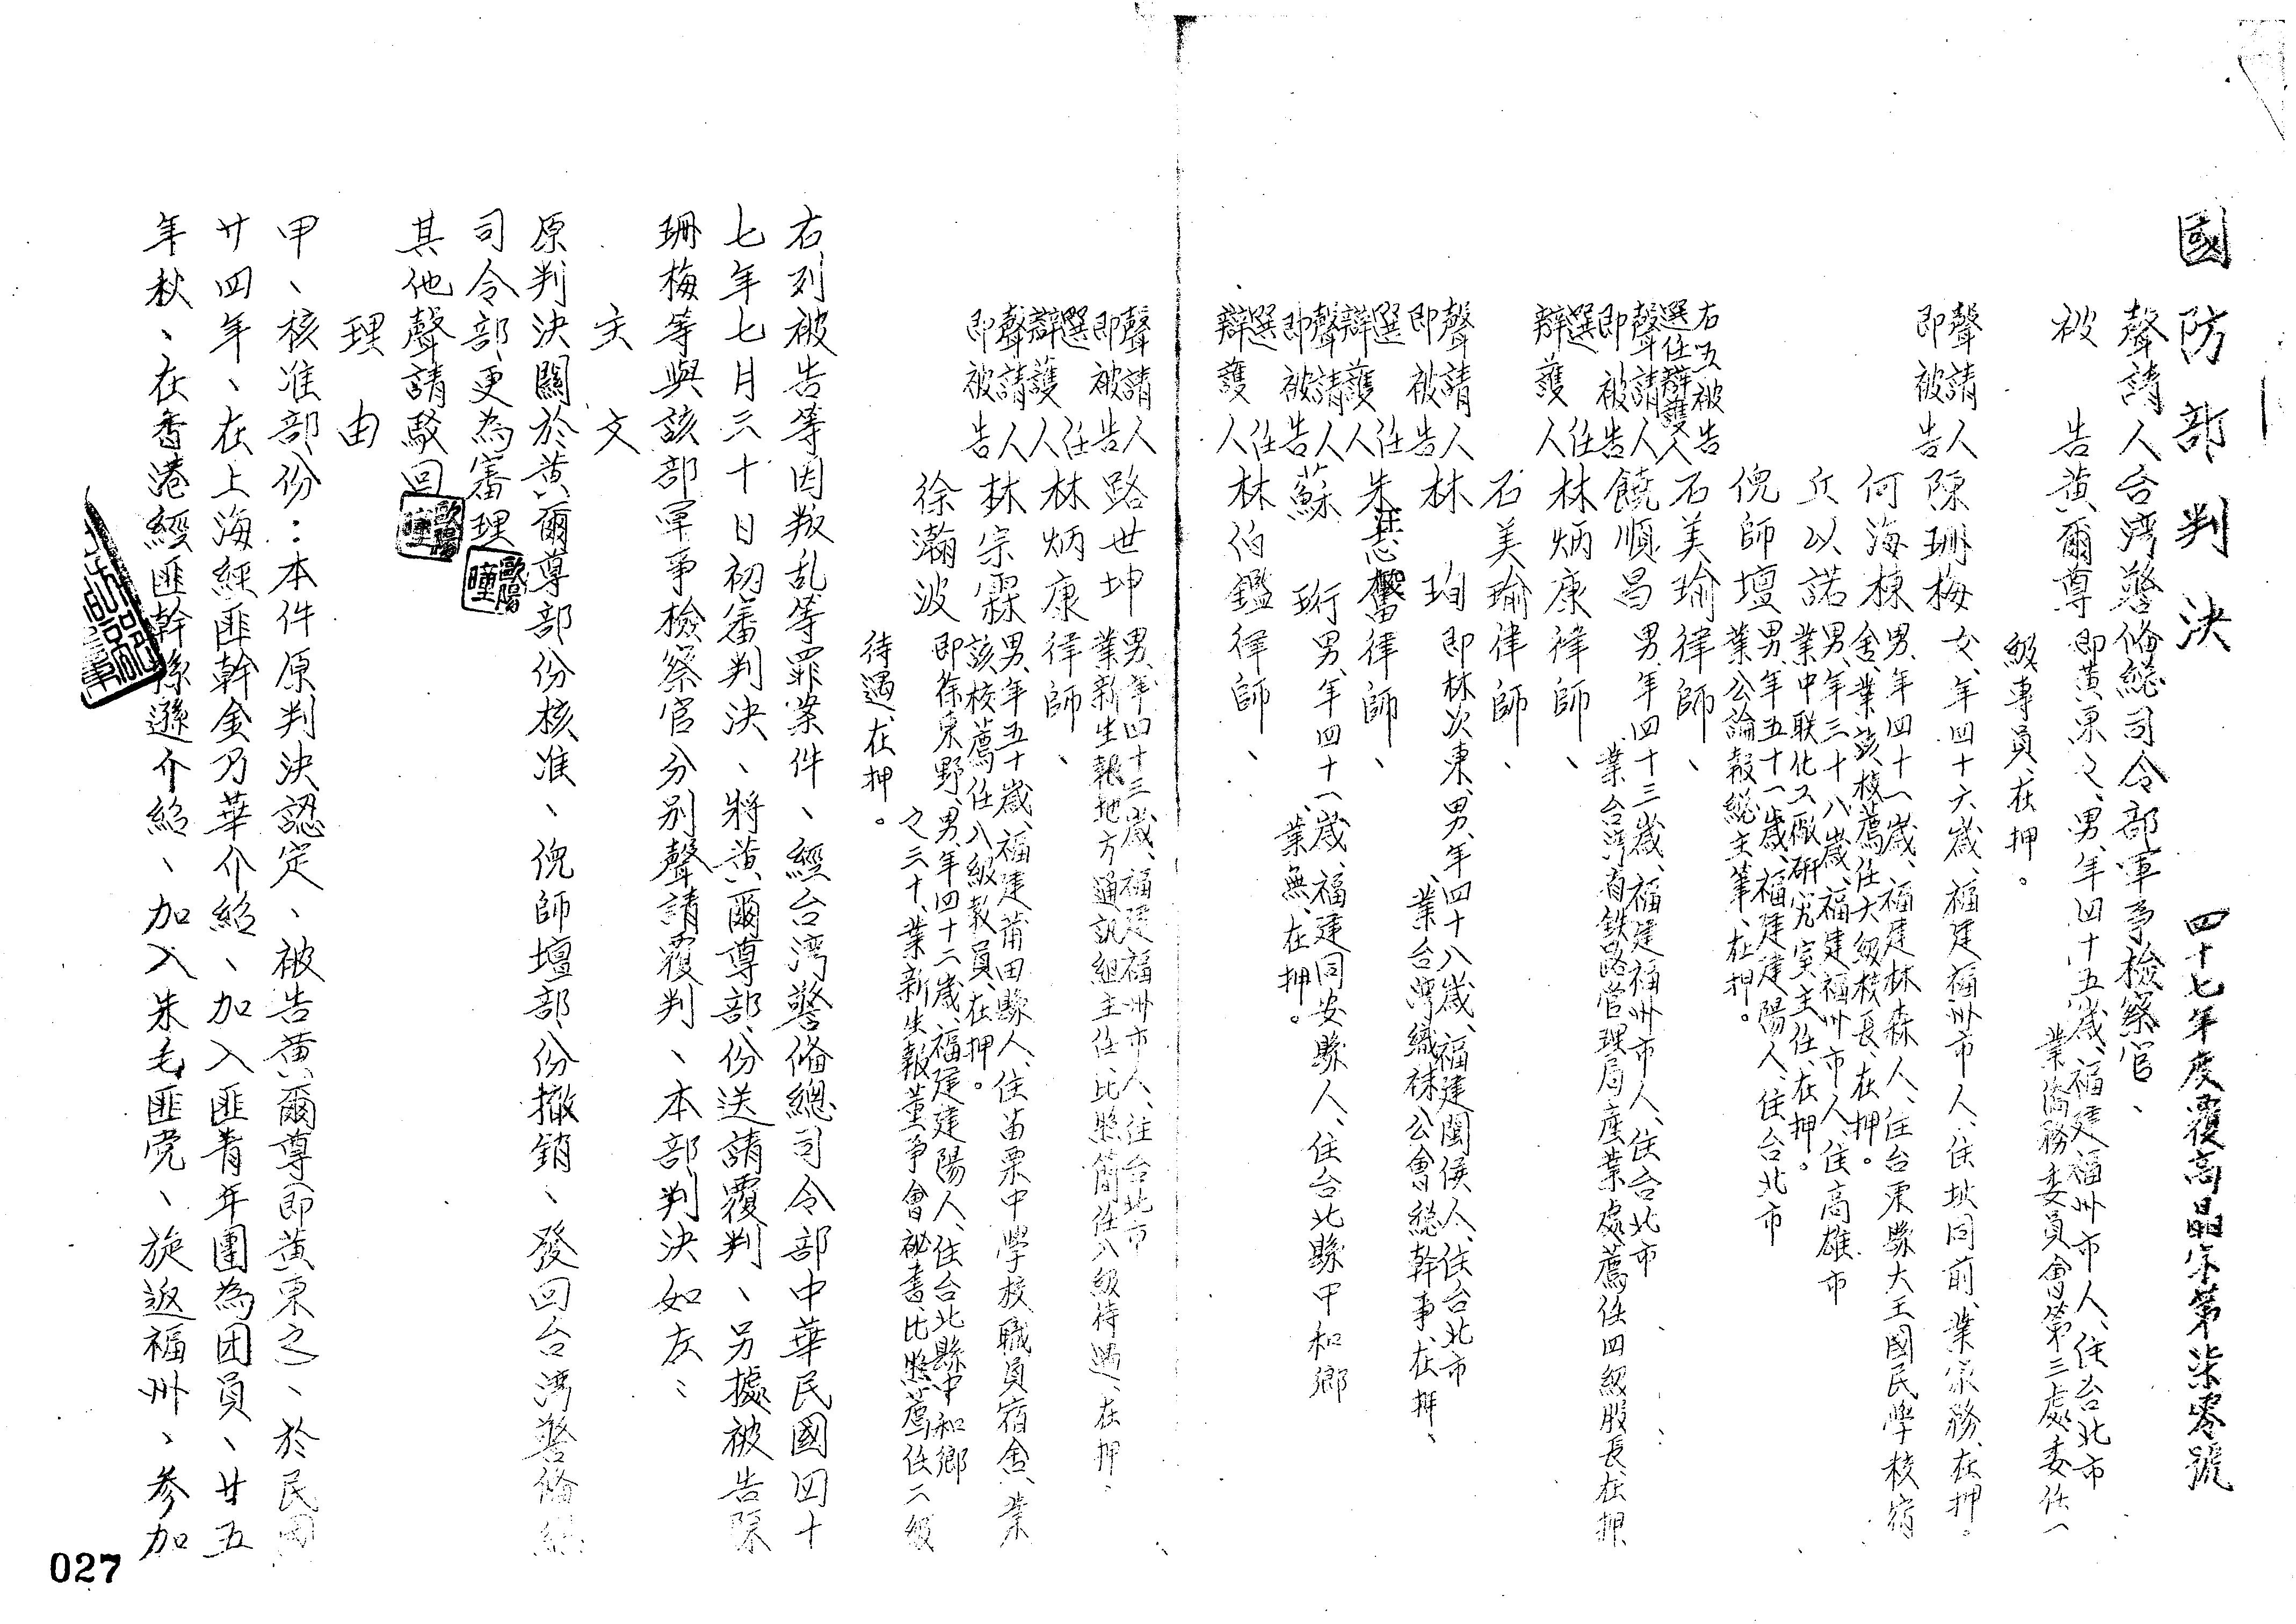 國防部判決
四十七年度覆高晶字第柒零號
聲請人台湾警备總司令部軍事檢察官、
被告黃爾尊即黃東之、男、年四十五歲、福建福州市人、住台北市
業僑務委員會第三處委任一
級專員、在押。
聲請人
即被告陳珊梅女、年四十六歲、福建福州市人、住址同前、業家務、在押。
何海棟男、年四十一歲、福建林森人、住台東縣大王國民學校宿
舍、業該校薦任大級校長、在押。
丘以諾男、年三十八歲、福建福州市人、住高雄市
業中联化工廠研究室主任、在押。
倪師壇男、年五十一歲、福建建陽人、住台北市
業公論報總主筆、在押。
右五被告
選任辯護人石美瑜律師、
聲請人
即被告饒順昌男、年四十三歲、福建福州市人、住台北市
業台湾省鉄路管理局產業處薦任四級股長、在押
選任
辯護人林炳康律師、
石美瑜律師、
聲請人
即被告林珀即林次東、男、年四十八歲、福建閩侯人、住台北市
、業台灣織袜公會總幹事、在押、
選任
辯護人朱律師、
聲請人
即被告蘇珩男、年四十一歲、福建同安縣人、住台北縣中和鄉
、業無、在押。
選任
辯護人林伯鑑律師、
聲請人
即被告路世坤男、年四十三歲、福建福州市人、住台北市
業新生報地方通訊組主任、比照簡任八級待遇、在押、
選任
辯護人林炳康律師、
聲請人
即被告林宗霖男、年五十歲、福建莆田縣人、住苗栗中學校職員宿舍、業
該校薦任八級教員、在押。
徐瀚波即徐東野、男、年四十二歲、福建建陽人、住台北縣中和鄉
之三十、業新生報董事會秘書、比照薦任二級
待遇、在押。
右列被告等因叛乱等罪案件、經台湾警備總司令部中華民國四十
七年七月三十日初審判決、將黃爾尊部份送請覆判、另據被告陳
珊梅等與該部軍事檢察官分別聲請覆判、本部判決如左：
主文
原判決關於黃爾尊部份核准、倪師壇部份撤銷、發回台湾警備總
司令部更為審理
其他聲請駁回
理由
甲、核准部份：本件原判決認定、被告黃爾尊（即黃東之）、於民國
廿四年、在上海經匪幹金乃華介紹、加入匪青年團為团員、廿五
年秋、在香港經匪幹孫遜介紹、加入朱毛匪党、旋返福州、參加
歐陽
曈
歐陽
曈
027